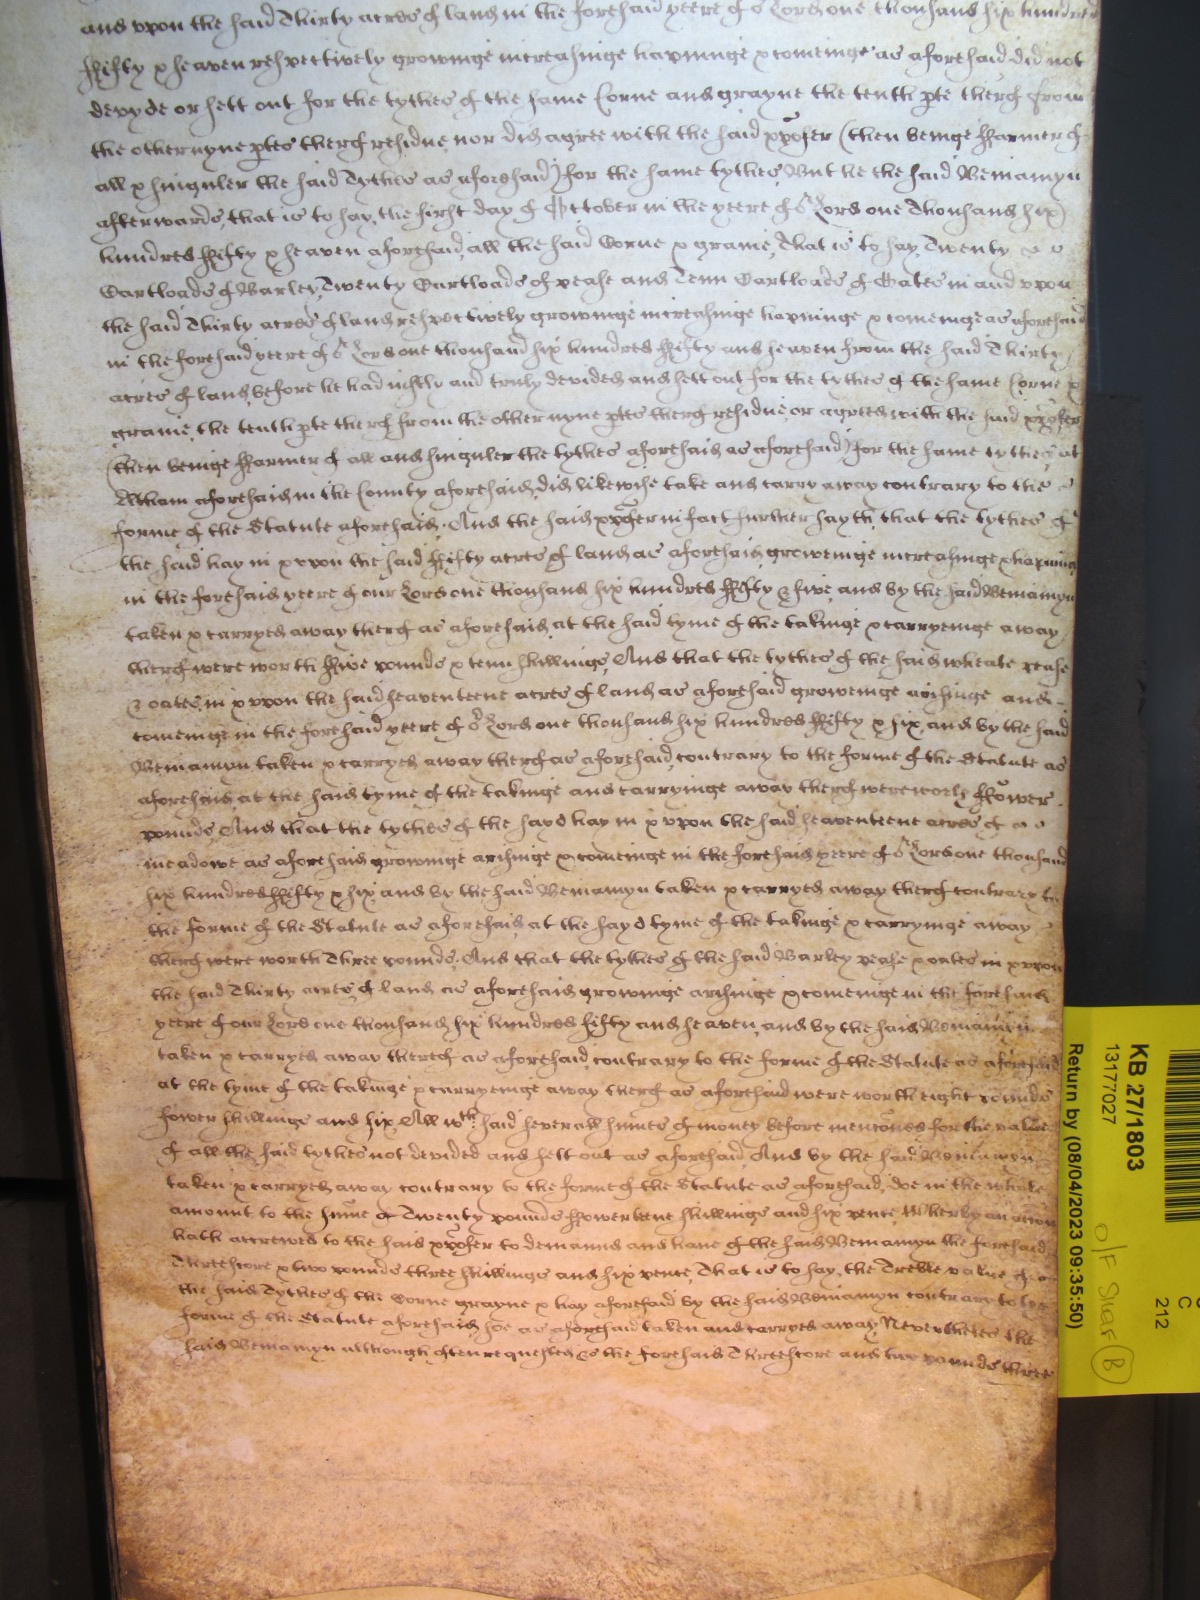 and vpon the said Thirty acres of land in the foresaid yeere of or Lord one thousand six hundred
ffifty & seaven respectively growinge increasinge happninge & comeinge as aforesaid did not
devyde or sett out for the tythes of the same Corne and grayne the tenth pte therof from
the other nyne ptes therof residue, nor did agree with the said xpofer (then beinge ffarmer of
all & singuler the said Tythes as aforesaid) for the same tythes, But he the said Beniamyn
afterwards, that is to say, the first day of October in the yeere of or Lord one Thousand six
hundred ffifty & seaven aforesaid, all the said Corne & graine, That is to say, Twenty
Cartloads of Barley, Twenty Cartloads of pease and Tenn Cartloads of Oates in and vpon
the said Thirty acres of land respectively growinge increasinge happninge & comeinge as aforesaid
in the foresaid yeere of or Lord one thousand six hundred ffifty and seaven from the said Thirty
acres of land, before he had iustly and truly devided and sett out for the tythes of the same Corne &
graine, the tenth pte therof from the other nyne ptes therof residue, or agreed with the said xpofer
(then beinge ffarmer of all and singuler the tythes aforesaid as aforesaid) for the same tythes, at
aforesaid in the County aforesaid, did likewise take and carry away contrary to the
forme of the Statute aforesaid. And the said xpofer in fact further sayth, that the tythes of
the said hay in & vpon the said ffifty acres of land as aforesaid, groweinge increasinge & happninge
in the foresaid yeere of our Lord one thousand six hundred ffifty & five, and by the said Beniamyn
taken & carryed away therof as aforesaid, at the said tyme of the takinge & carryeinge away
therof were worth ffive pounds & tenn shillings, And that the tythes of the said wheate pease
& oates, in & vpon the said seaventeene acres of land as aforesaid groweinge arisinge and
comeinge in the foresaid yeere of or Lord one thousand six hundred ffifty & six, and by the said
Beniamyn taken & carryed away therof as aforesaid, contrary to the forme of the Statute as
aforesaid, at the said tyme of the takinge and carryinge away therof were worth ffower
pounds, And that the tythes of the sayd hay in & vpon the said seaventeene acres of
meadowe as aforesaid growinge arisinge & comeinge in the foresaid yeere of or Lord one thousand
six hundred ffifty & six, and by the said Beniamyn taken & carryed away therof contrary to
the forme of the Statute as aforesaid, at the sayd tyme of the takinge & carryinge away
therof were worth Three pounds, And that the tythes of the said Barley pease & oates in & vpon
the said Thirty acres of land as aforesaid growinge arisinge & comeinge in the foresaid
yeere of our Lord one thousand six hundred fifty and seaven, and by the said Beniamyn
taken & carryed away therof as aforesaid, contrary to the forme of the Statute as aforesaid
at the tyme of the takinge & carryeinge away therof as aforesaid were worth eight pounds
fower shillings and six, All wch said severall summes of money before menconed for the value
of all the said tythes not devided and sett out as aforesaid, And by the said Beniamyn
taken & carryed away contrary to the forme of the Statute as aforesaid, doe in the whole
amount to the summe of Twenty pounds ffowerteene shillings and six pence, Wherby an accon
hath accrewed to the said xpofer to demannd and have of the said Beniamyn the foresaid
Threescore & two pounds three shillings and six pence, That is to say, the Treble value of
the said Tythes of the Corne grayne & hay aforesaid by the said Beniamyn contrary to the
forme of the Statute aforesaid, soe as aforesaid taken and carryed away, Neverthelesse the
said Beniamyn although often requested &c the foresaid Threescore and two pounds three
KB 27/1803
13177027
Return by (08/04/2023 09:35:50)
C
212
O/F
B